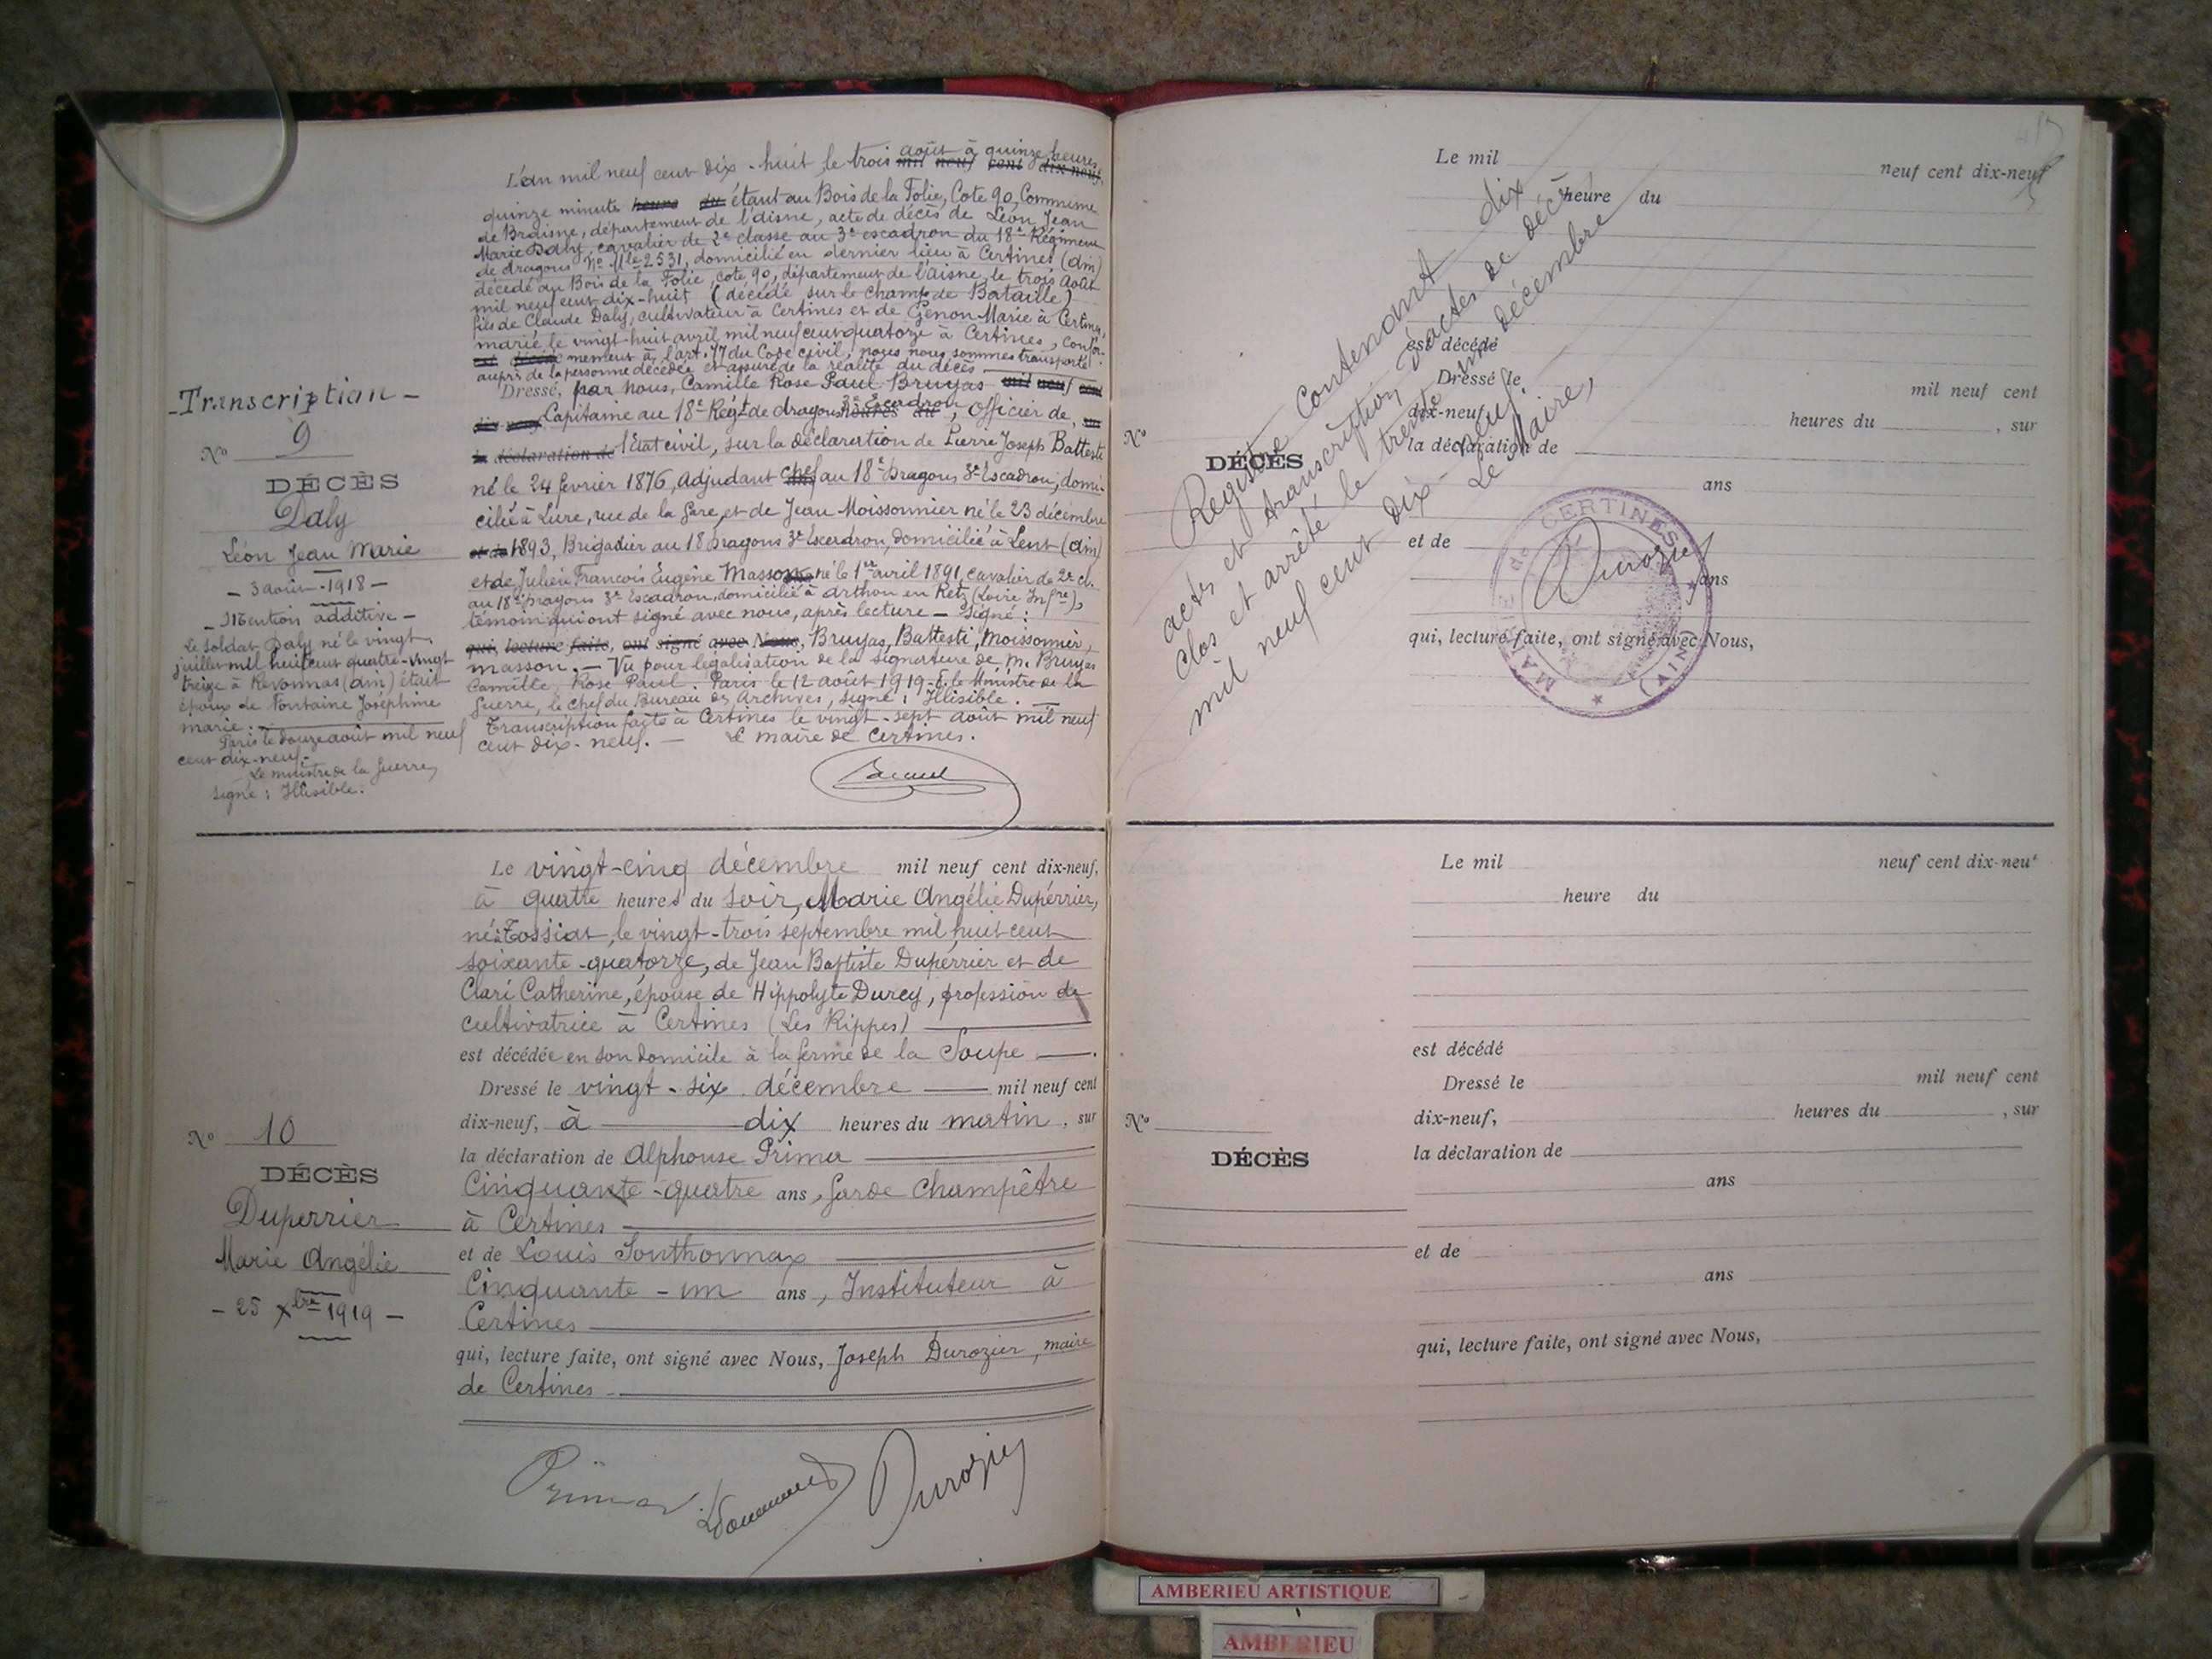 L'an mil neuf cent dix-huit le trois août à quinze heures
mil neuf cent dix-neuf,
quinze minute heure du étant au Bois de la Folie, Cote 90, Commune
de Braisne, département de l'aisne, acte de décès de Léon Jean
Marie Daly, cavalier de 2e classe au 3e escadron du 18e Régiment
de dragons No Mle 2531, domicilié en dernier lieu à Certines (ain)
décédé au Bois de la Folie, cote 90, département de l'aisne, le trois août
mil neuf cent dix-huit (décédé sur le champ de Bataille)
fils de Claude Daly, cultivateur à Certines et de Genon Marie à Certines,
marié le vingt-huit avril mil neuf cent quatorze à Certines, Confor-
est décédé mement à l'art. 77 du Code civil, nous nous sommes transporté
auprès de la personne décédée et assuré de la réalité du décès
Dressé, par nous, Camille Rose Paul Bruyas mil neuf cent
dix-neuf, Capitaine au 18e Régt de dragons 3e Escadron heures du, Officier de, sur
la déclaration de l'Etat civil, sur la déclaration de Pierre Joseph Battesti
né le 24 fevrier 1876, Adjudant chef au 18e Dragons 3e Escadron, domi-
cilié à Lure, rue de la Gare, et de Jean Moissonnier né le 23 décembre
et de 1893, Brigadier au 18 Dragons 3e Escadron, domicilié à Lent (ain)
et de Julien François Eugène Masson né le 1er avril 1891, cavalier de 2e cl.
au 18e Dragons 3e Escadron, domicilié à Arthon en Retz (Loire Infre),
temoin qui ont signé avec nous, après lecture – Signé :
qui, lecture faite, ont signé avec Nous, Bruyas, Battesti, Moissonnier,
masson. – Vu pour légalisation de la signature de M. Bruyas
Camille, Rose Paul. Paris le 12 août 1919. le Ministre de la
Guerre, le Chef du Bureau des Archives, signé : Illisible.
Transcription faite à Certines le vingt-sept août mil neuf
cent dix-neuf. – Le maire de Certines.
- Transcription -
No 9
DÉCÈS
Daly
Léon Jean Marie
- 3 août 1918 -
- Mention additive -
Le soldat Daly né le vingt
juillet mil huit cent quatre-vingt
treize à Revonnas (ain) était
époux de Fontaine Joséphine
marie.
Paris le douze août mil neuf
cent dix-neuf.
Le ministre de la Guerre,
signé : Illisible.
Le vingt-cinq décembre mil neuf cent dix-neuf,
à quatre heures du soir, Marie Angélie Dupérrier,
né à Tossiat, le vingt-trois septembre mil huit cent
soixante-quatorze, de Jean Baptiste Dupérrier et de
Clari Catherine, épouse de Hippolyte Durcy, profession de
cultivatrice à Certines (Les Rippes)
est décédée en son domicile à la ferme de la Soupe
Dressé le vingt-six décembre mil neuf cent
dix-neuf, à dix heures du matin, sur
la déclaration de Alphonse Prima
Cinquante-quatre ans, Garde Champêtre
à Certines
et de Louis Southonnax
Cinquante-un ans, Instituteur à
Certines
qui, lecture faite, ont signé avec Nous, Joseph Durozier, maire
de Certines
No 10
DÉCÈS
Duperrier
Marie Angélie
- 25 Xbre 1919 -
Prima
Durozier
Le mil neuf cent dix-neuf
heure du
est décédé
Dressé le mil neuf cent
dix-neuf, heures du , sur
la déclaration de
ans
et de
ans
qui, lecture faite, ont signé avec Nous,
No
DÉCÈS
Registre contenant dix
actes et transcription d'actes de décès
clos et arrêté le trente un décembre
mil neuf cent dix-neuf.
Le Maire,
Durozier
MAIRIE de CERTINES
(AIN)
Le mil neuf cent dix-neuf
heure du
est décédé
Dressé le mil neuf cent
dix-neuf, heures du , sur
No
DÉCÈS
la déclaration de
ans
et de
ans
qui, lecture faite, ont signé avec Nous,
AMBERIEU ARTISTIQUE
AMBERIEU